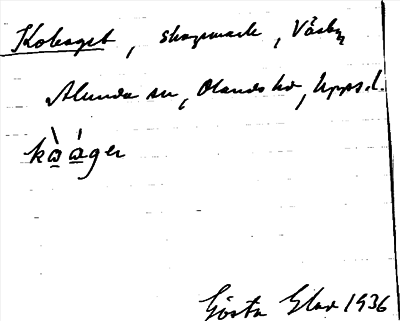 Kohaget, skogsmark, Väsby
Alunda sn, Olands hd, Upps. l.
kɷ̀ɷ́ger
Gösta Elas 1936